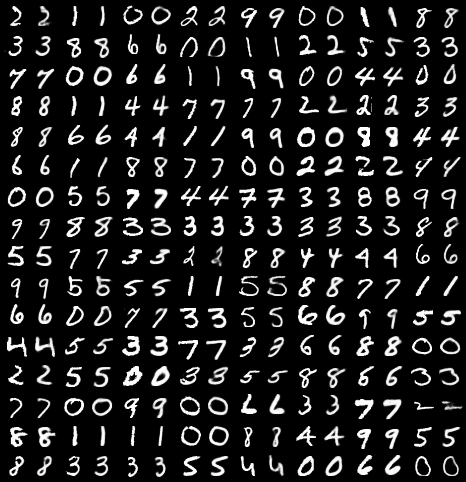 2 2 1 1 0 0 2 2 9 9 0 0 1 1 8 8
3 3 8 8 6 6 0 0 1 1 2 2 5 5 3 3
7 7 0 0 6 6 1 1 9 9 0 0 4 4 0 0
8 8 1 1 4 4 7 7 7 7 2 2 2 2 3 3
8 8 6 6 4 4 1 1 9 9 0 0 8 8 4 4
6 6 1 1 8 8 7 7 0 0 2 2 2 2 4 4
0 0 5 5 7 7 4 4 7 7 3 3 8 8 9 9
9 9 8 8 3 3 3 3 3 3 3 3 3 3 8 8
5 5 7 7 3 3 2 2 8 8 4 4 4 4 6 6
9 9 5 5 5 5 1 1 5 5 8 8 7 7 1 1
6 6 0 0 7 7 3 3 5 5 6 6 9 9 5 5
4 4 5 5 3 3 7 7 3 3 6 6 8 8 0 0
2 2 5 5 0 0 3 3 5 5 8 8 6 6 3 3
7 7 0 0 9 9 0 0 6 6 3 3 7 7 2 2
8 8 1 1 1 1 0 0 8 8 4 4 9 9 5 5
8 8 3 3 3 3 5 5 4 4 0 0 6 6 0 0